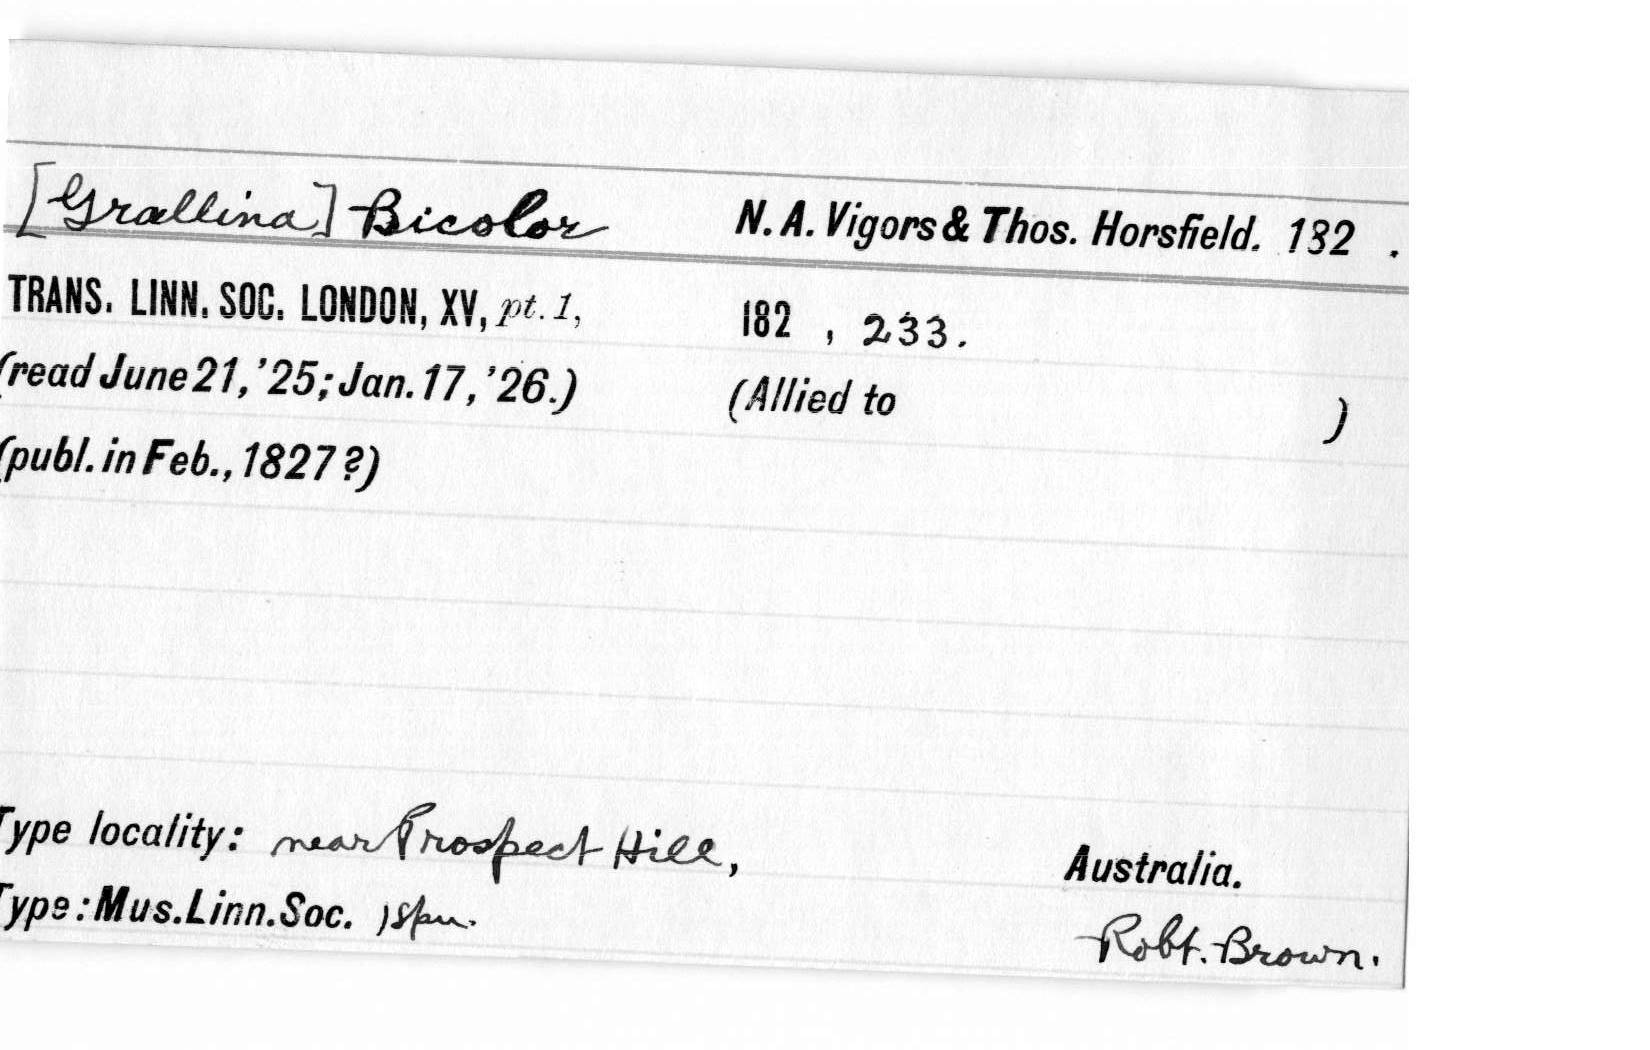 [Grallina] Bicolor N. A. Vigors & Thos. Horsfield. 182 .
TRANS. LINN. SOC. LONDON, XV, pt. 1, 182 , 233.
(read June 21, '25; Jan. 17, '26.) (Allied to )
(publ. in Feb., 1827 ?)
Type locality: near Prospect Hill, Australia.
Type: Mus. Linn. Soc. 1 spm. Robt. Brown.